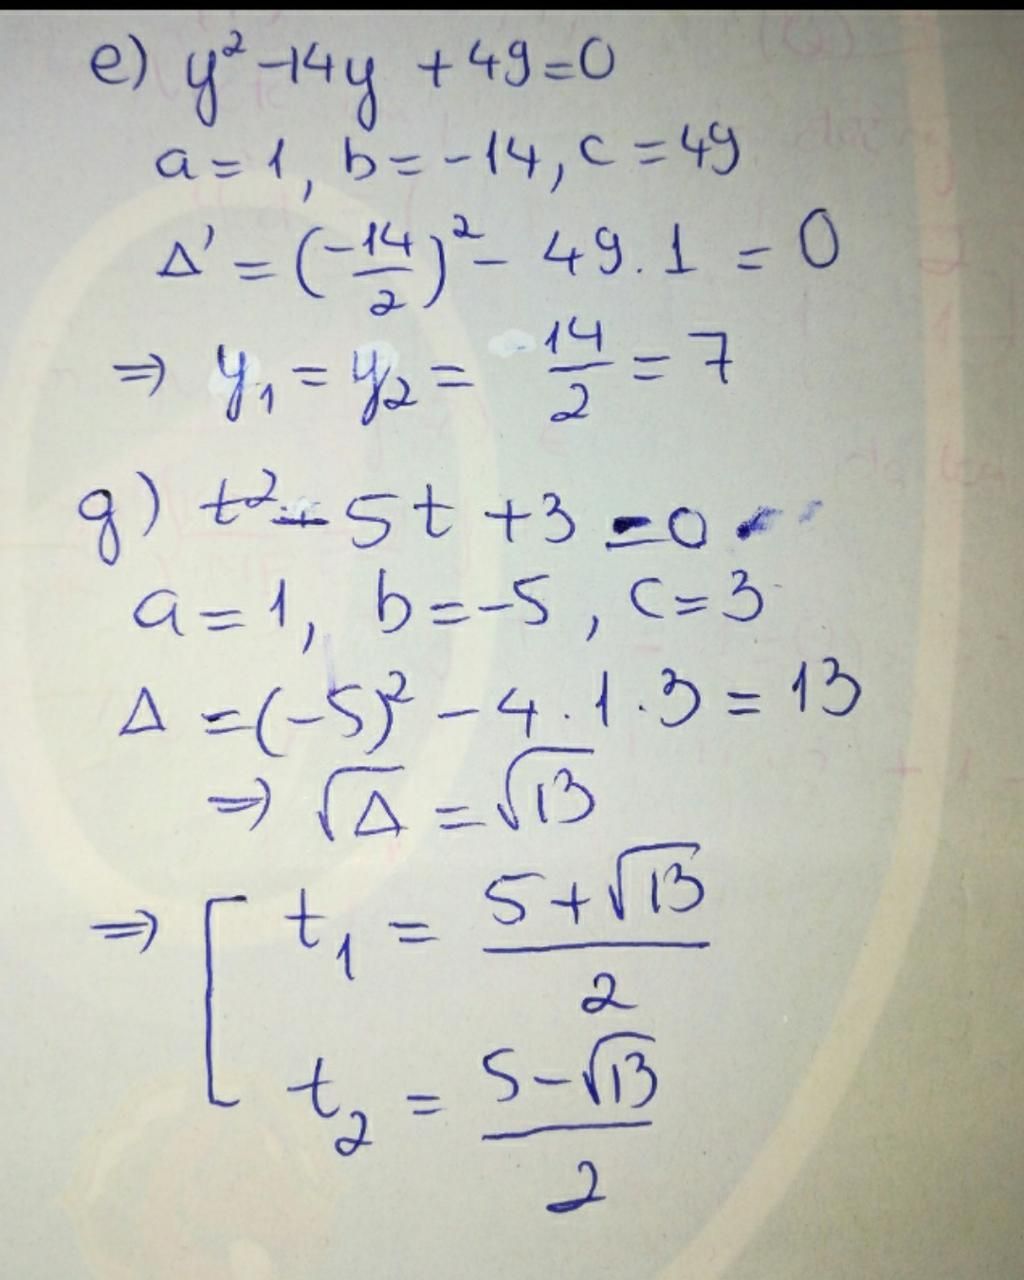 e) y² - 14y + 49 = 0
a = 1, b = -14, c = 49
Δ' = (-14/2)² - 49 . 1 = 0
⇒ y₁ = y₂ = 14/2 = 7
g) t² - 5t + 3 = 0
a = 1, b = -5, c = 3
Δ = (-5)² - 4 . 1 . 3 = 13
⇒ √Δ = √13
⇒ [ t₁ = (5 + √13)/2
t₂ = (5 - √13)/2